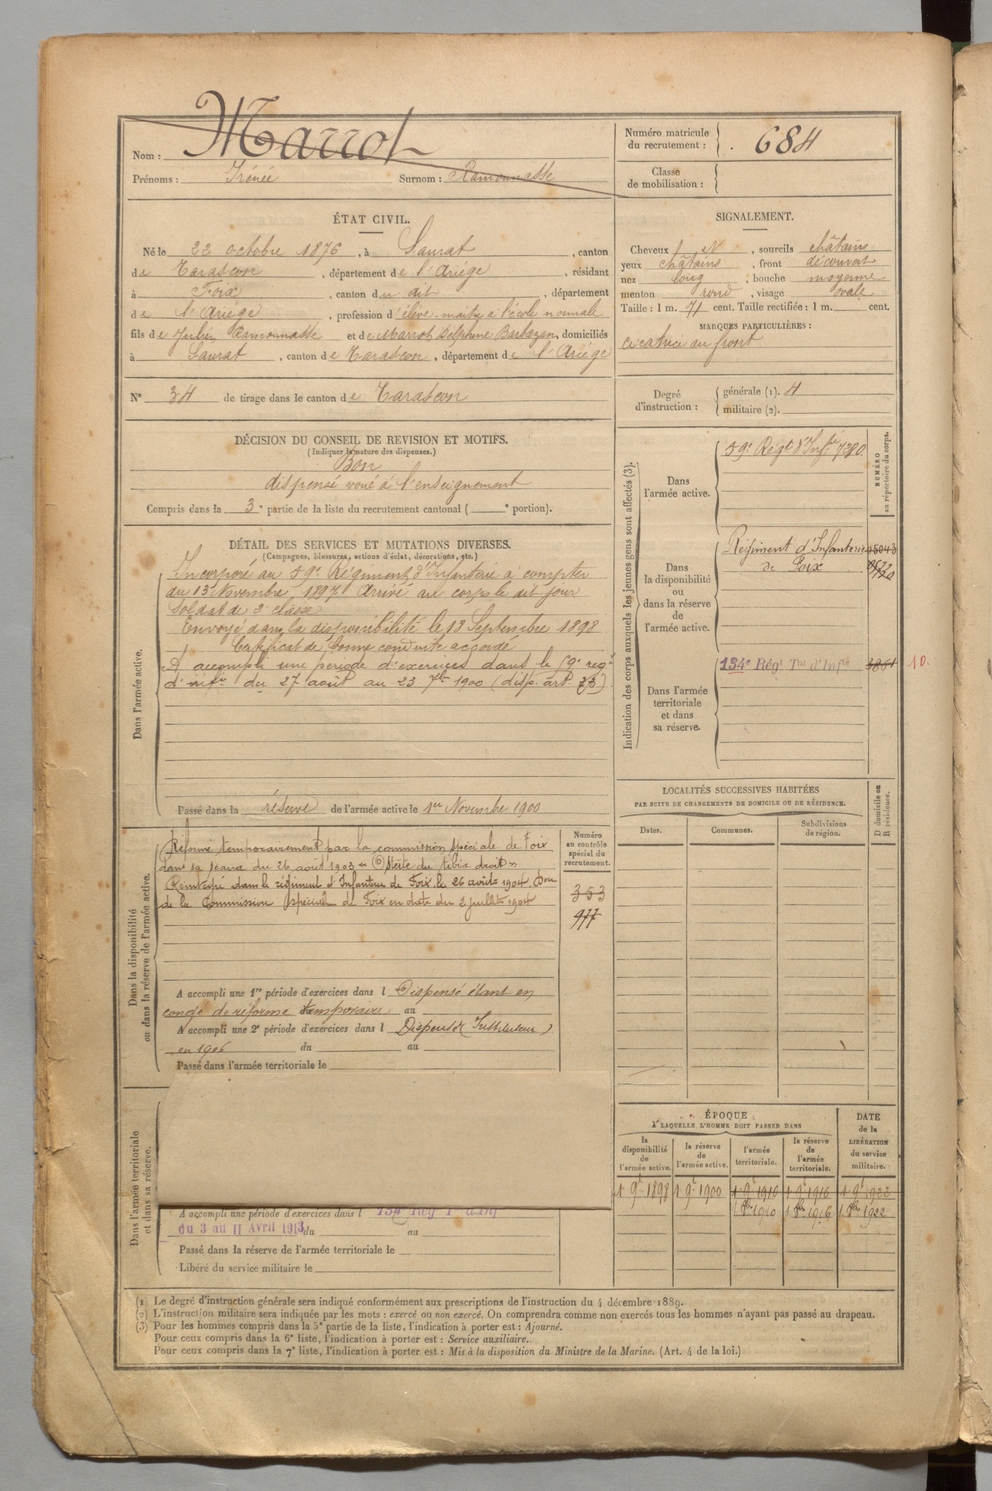 Nom : Marrot
Prénoms : Irénée Surnom : Ramonnasse
Numéro matricule du recrutement : 684
Classe de mobilisation :
ÉTAT CIVIL.
Né le 22 octobre 1876, à Saurat, canton
de Tarascon, département de l'Ariège, résidant
à Foix, canton du dit, département
de l'Ariège, profession d'élève-maître à l'école normale
fils de Julien Ramonnasse et de Marrot Delphine, domiciliés
à Saurat, canton de Tarascon, département de l'Ariège
N° 34 de tirage dans le canton de Tarascon
SIGNALEMENT.
Cheveux N, sourcils châtains
yeux châtains, front découvert
nez long, bouche moyenne
menton rond, visage ovale
Taille : 1 m. 71 cent. Taille rectifiée : 1 m. cent.
MARQUES PARTICULIÈRES :
cicatrice au front
Degré d'instruction : générale (1). 4
militaire (2).
DÉCISION DU CONSEIL DE REVISION ET MOTIFS.
(Indiquer la nature des dispenses.)
Bon
dispensé voué à l'enseignement
Compris dans la 3e partie de la liste du recrutement cantonal ( e portion).
DÉTAIL DES SERVICES ET MUTATIONS DIVERSES.
(Campagnes, blessures, actions d'éclat, décorations, etc.)
Dans l'armée active.
Incorporé au 59e Régiment d'Infanterie à compter
du 13 Novembre 1897 Arrivé au corps le dit jour
Soldat de 2e classe
Envoyé dans la disponibilité le 18 Septembre 1898
Certificat de bonne conduite accordé
A accompli une période d'exercices dans le 59e régt
d'infie du 27 août au 23 7bre 1900 (disp. art. 23)
Passé dans la réserve de l'armée active le 1er Novembre 1900
Indication des corps auxquels les jeunes gens sont affectés (3).
NUMÉRO au répertoire du corps.
Dans l'armée active.
59e Régt d'Infie 7280
Dans la disponibilité ou dans la réserve de l'armée active.
Régiment d'Infanterie
de Foix
Dans l'armée territoriale et dans sa réserve.
134e Régt Tal d'Infie 10.
LOCALITÉS SUCCESSIVES HABITÉES
PAR SUITE DE CHANGEMENTS DE DOMICILE OU DE RÉSIDENCE.
Dates. Communes. Subdivisions de région. D domicile ou R résidence.
Dans la disponibilité ou dans la réserve de l'armée active.
Numéro au contrôle spécial du recrutement.
Réformé temporairement par la commission spéciale de Foix
dans sa séance du 26 août 1903 « Ostéite du tibia droit »
Réintégré dans le régiment d'Infanterie de Foix le 26 août 1904
de la Commission spéciale de Foix en date du 2 juillet 1904
353
977
A accompli une 1re période d'exercices dans l Dispensé étant en
congé de réforme temporaire au
A accompli une 2e période d'exercices dans l Dispensé (Instituteur)
en 1906 du au
Passé dans l'armée territoriale le
Dans l'armée territoriale et dans sa réserve.
A accompli une période d'exercices dans l 134 Rég T
du 3 au 11 Avril 1913 du au
Passé dans la réserve de l'armée territoriale le
Libéré du service militaire le
ÉPOQUE
A LAQUELLE L'HOMME DOIT PASSER DANS
la disponibilité de l'armée active. la réserve de l'armée active. l'armée territoriale. la réserve de l'armée territoriale.
DATE de la LIBÉRATION du service militaire.
1 9e 1898 1 9e 1900 1 9e 1910 1 9e 1916 1 9e 1922
1 8bre 1910 1 8bre 1916 1 8bre 1922
(1) Le degré d'instruction générale sera indiqué conformément aux prescriptions de l'instruction du 4 décembre 1889.
(2) L'instruction militaire sera indiquée par les mots : exercé ou non exercé. On comprendra comme non exercés tous les hommes n'ayant pas passé au drapeau.
(3) Pour les hommes compris dans la 5e partie de la liste, l'indication à porter est : Ajourné.
Pour ceux compris dans la 6e liste, l'indication à porter est : Service auxiliaire.
Pour ceux compris dans la 7e liste, l'indication à porter est : Mis à la disposition du Ministre de la Marine. (Art. 4 de la loi.)